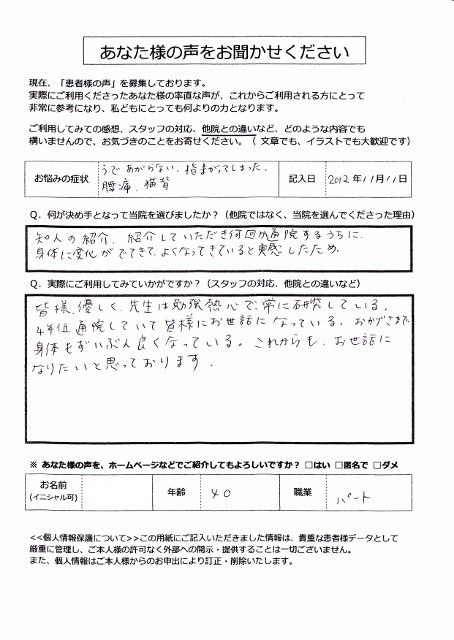 あなた様の声をお聞かせください
現在、「患者様の声」を募集しております。
実際にご利用くださったあなた様の率直な声が、これからご利用される方にとって
非常に参考になり、私どもにとっても何よりの力となります。
ご利用してみての感想、スタッフの対応、他院との違いなど、どのような内容でも
構いませんので、お気づきのことをお寄せください。（ 文章でも、イラストでも大歓迎です）
お悩みの症状
うであがらない、指まがってしまった、
腰痛、猫背
記入日
2012年11月11日
Q．何が決め手となって当院を選びましたか？（他院ではなく、当院を選んでくださった理由）
知人の紹介、紹介していただき何回か通院するうちに、
身体に変化がでてきて、よくなってきていると実感したため。
Q．実際にご利用してみていかがですか？（スタッフの対応、他院との違いなど）
皆様、優しく、先生は勉強熱心で、常に研究している。
4年位通院していて皆様にお世話になっている。おかげさまで、
身体もずいぶん良くなっている。これからも、お世話に
なりたいと思っております。
※ あなた様の声を、ホームページなどでご紹介してもよろしいですか？ □はい □匿名で □ダメ
お名前
(イニシャル可)
年齢
40
職業
パート
<<個人情報保護について>>この用紙にご記入いただきました情報は、貴重な患者様データとして
厳重に管理し、ご本人様の許可なく外部への開示・提供することは一切ございません。
また、個人情報はご本人様からのお申出により訂正・削除いたします。